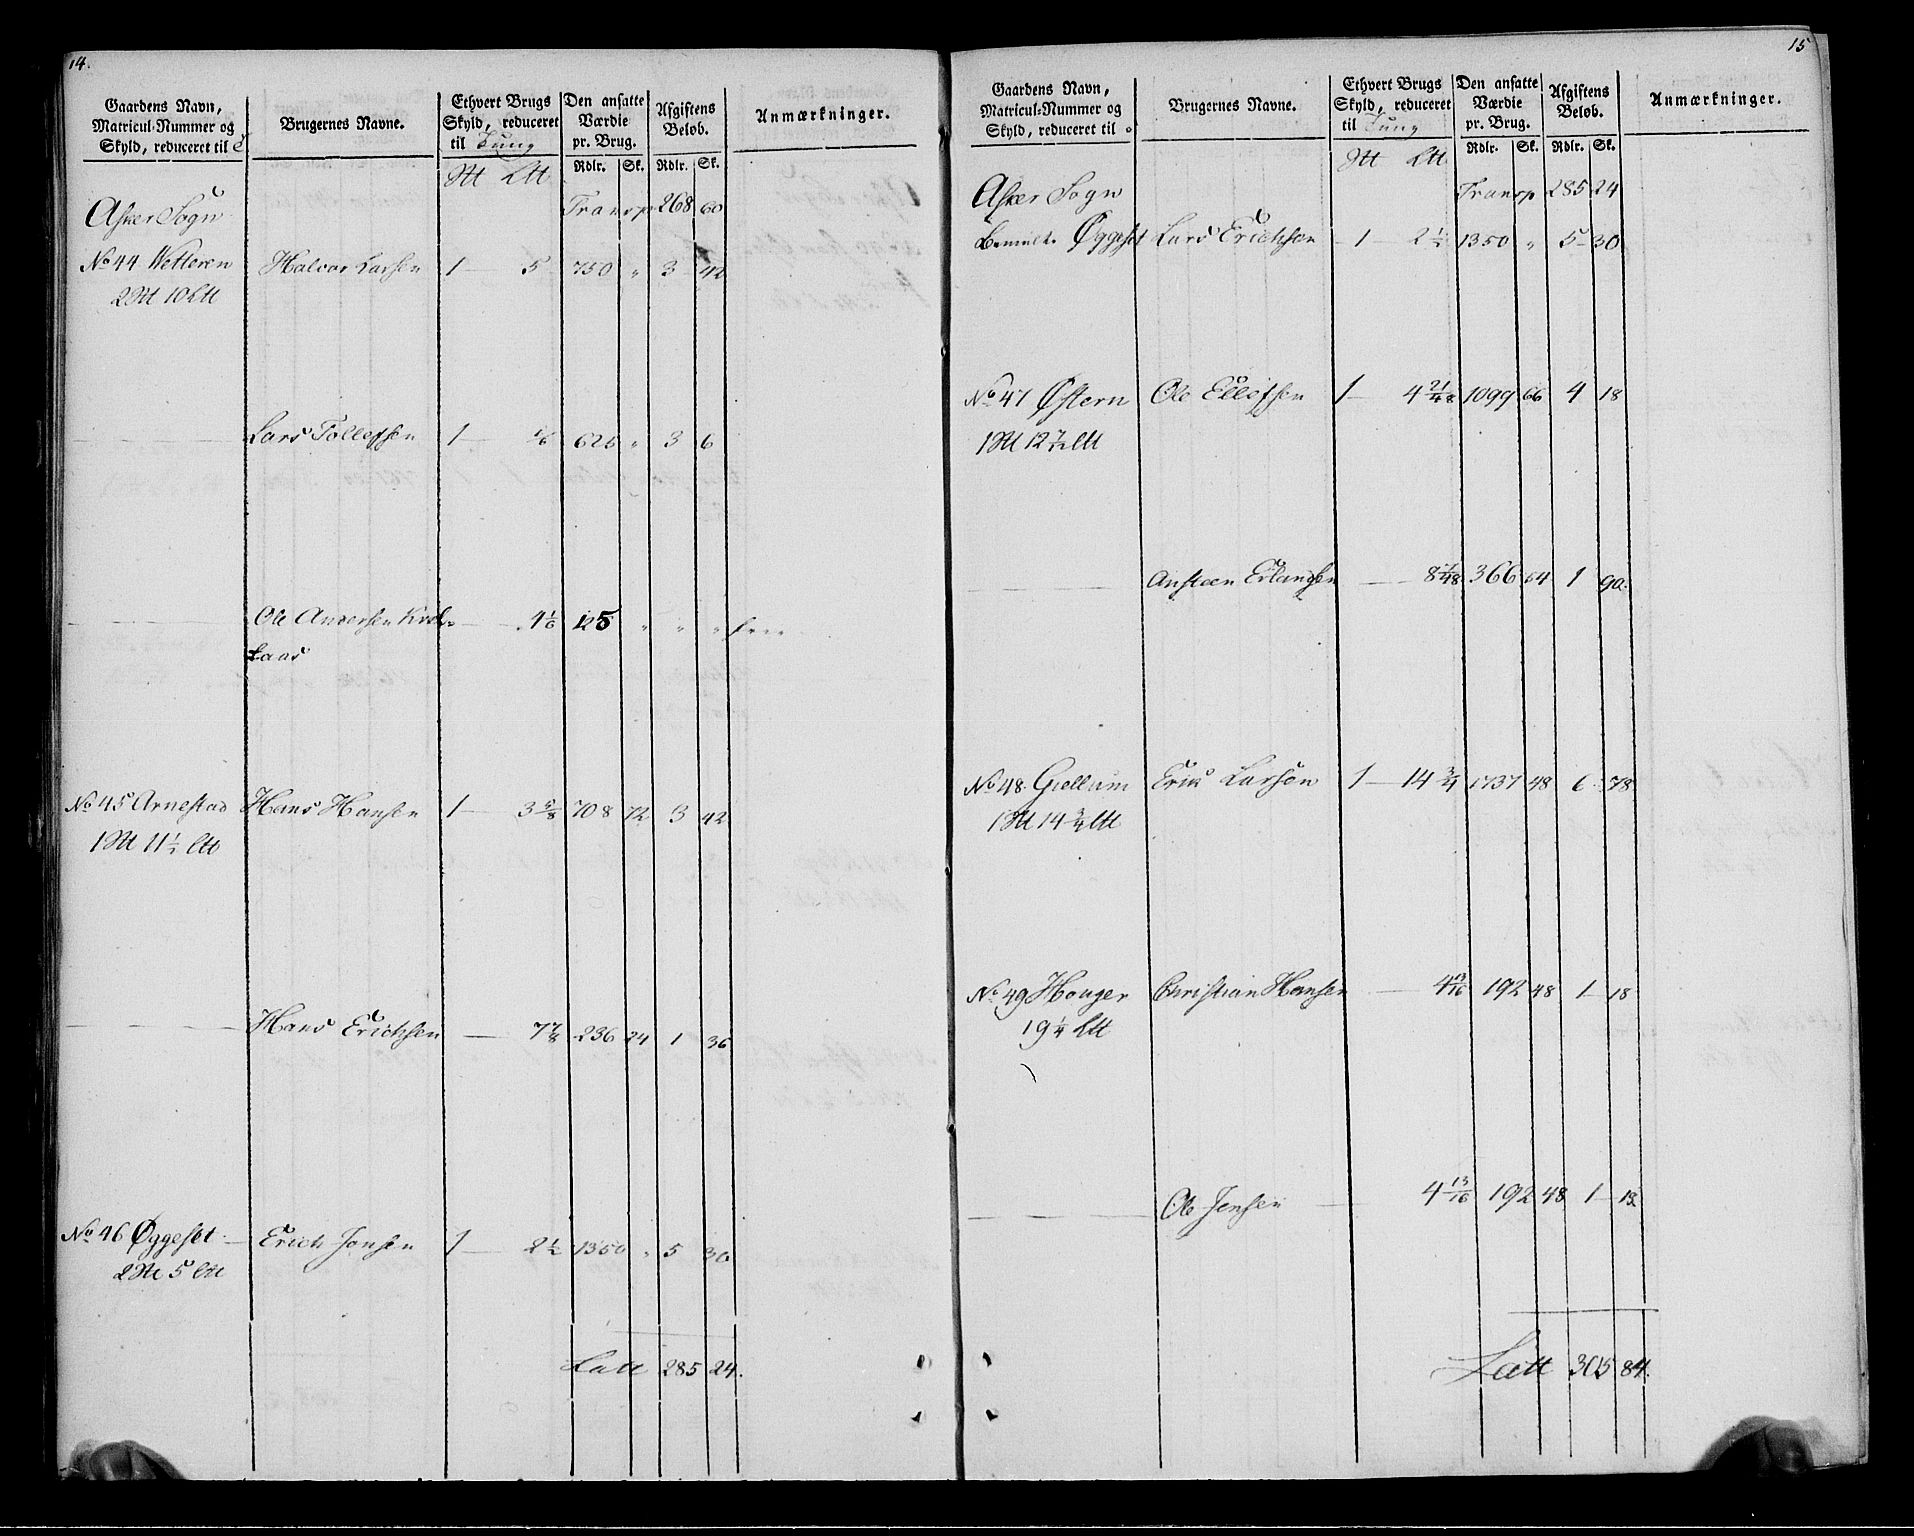 14.
Gaardens Navn, Matricul-Nummer og Skyld, reduceret til
Brugernes Navne.
Ethvert Brugs Skyld, reduceret til Tung
Den ansatte Værdie pr. Brug.
Afgiftens Beløb.
Anmærkninger.
Rdlr. Sk. Rdlr. Sk.
Asker Sogn Transp 268 60
No 44 Wetteren Halvor Larsen 1 — 5 750 " 3 42
2 10
Lars Tollefsen 1 — 5/6 625 " 3 6
Ole Andersen — 4 1/6 125 " " "
No 45 Arnestad Hans Hansen 1 — 3 5/8 708 72 3 42
1 11 1/2
Hans Erichsen — 7 7/8 236 24 1 36
No 46 Øggeset Erich Jonsen 1 — 2 1/2 1350 " 5 30
2 5
Latt 285 24.
15
Gaardens Navn, Matricul-Nummer og Skyld, reduceret til
Brugernes Navne.
Ethvert Brugs Skyld, reduceret til Tung
Den ansatte Værdie pr. Brug.
Afgiftens Beløb.
Anmærkninger.
Rdlr. Sk. Rdlr. Sk.
Asker Sogn Transp 285 24
Øggeset Lars Erichsen 1 — 2 1/2 1350 " 5 30
No 47 Østern Ole Ellefsen 1 — 4 21/48 1099 66 4 18
1 12 7/12
Ansteen Erlandsen — 8 7/48 366 54 1 90.
No 48. Giellum Erik Larsen 1 — 14 3/4 1737 48 6 78
1 14 3/4
No 49 Houger Christian Hansen — 4 13/16 192 48 1 18
19 1/4
Ole Jensen — 4 13/16 192 48 1 18
Latt 305 84.